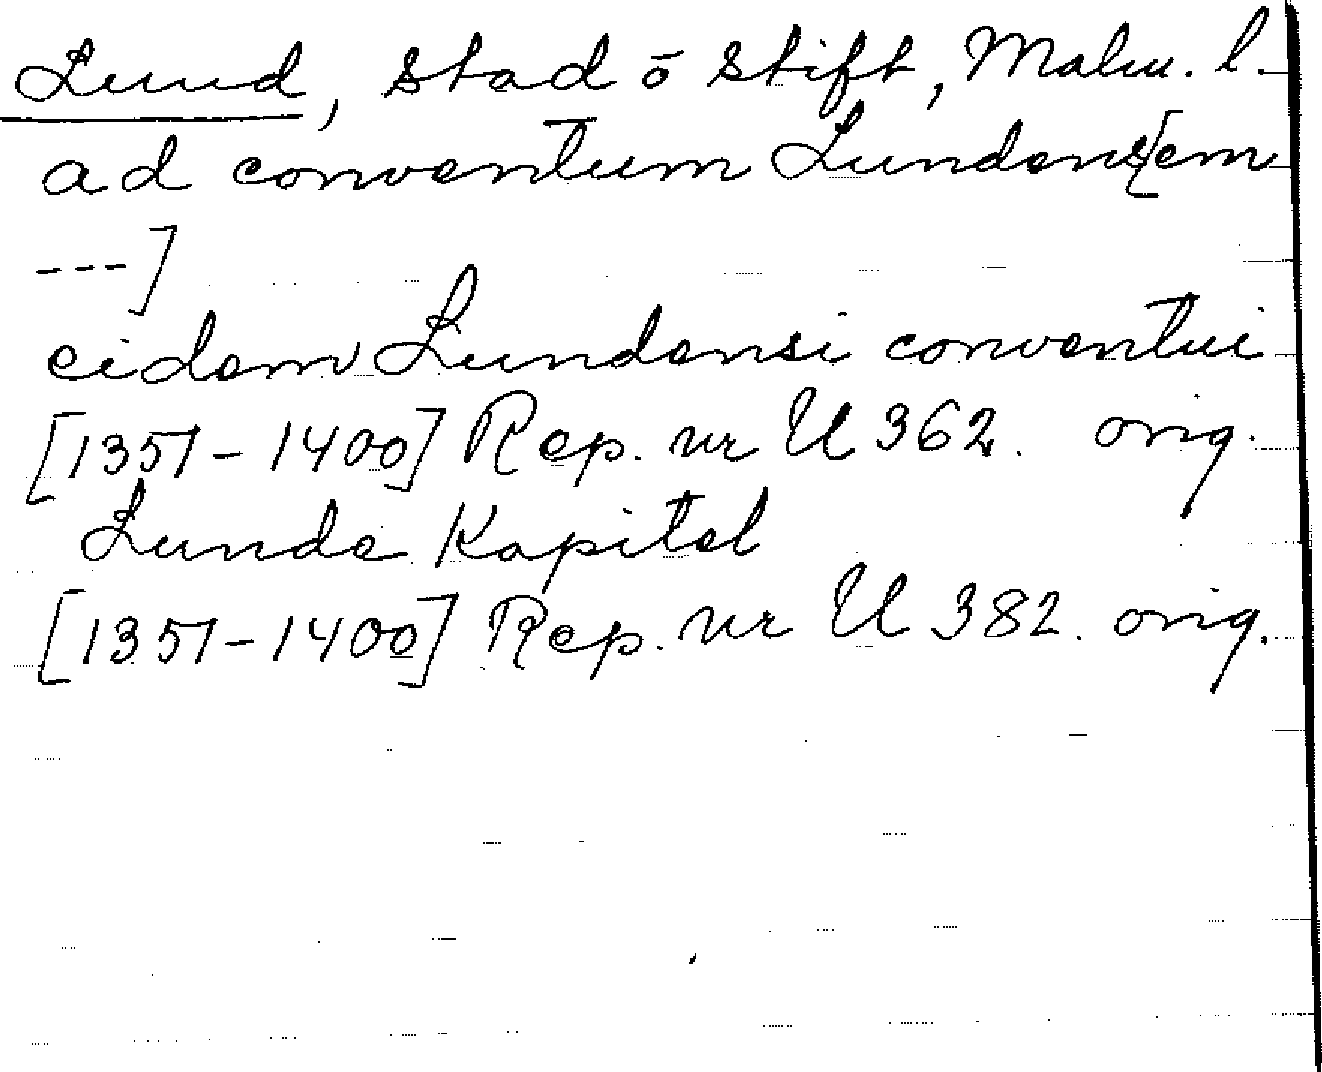 Lund, stad ō stift, Malm. l.
ad conventum Lundens[em
---]
eidem Lundensi conventui
[1351-1400] Rep. nr U 362. orig.
Lunde Kapitel
[1351-1400] Rep. nr U 382. orig.